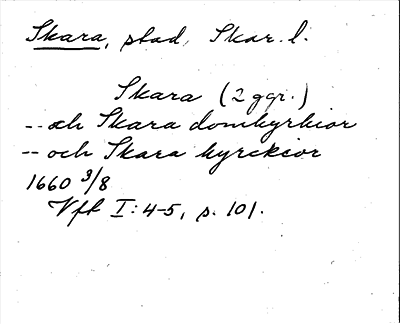 Skara, stad, Skar. l.
Skara (2 ggr.)
-- och Skara domkyrkior
-- och Skara kyrckior
1660 3/8
Vft I:4-5, s. 101.